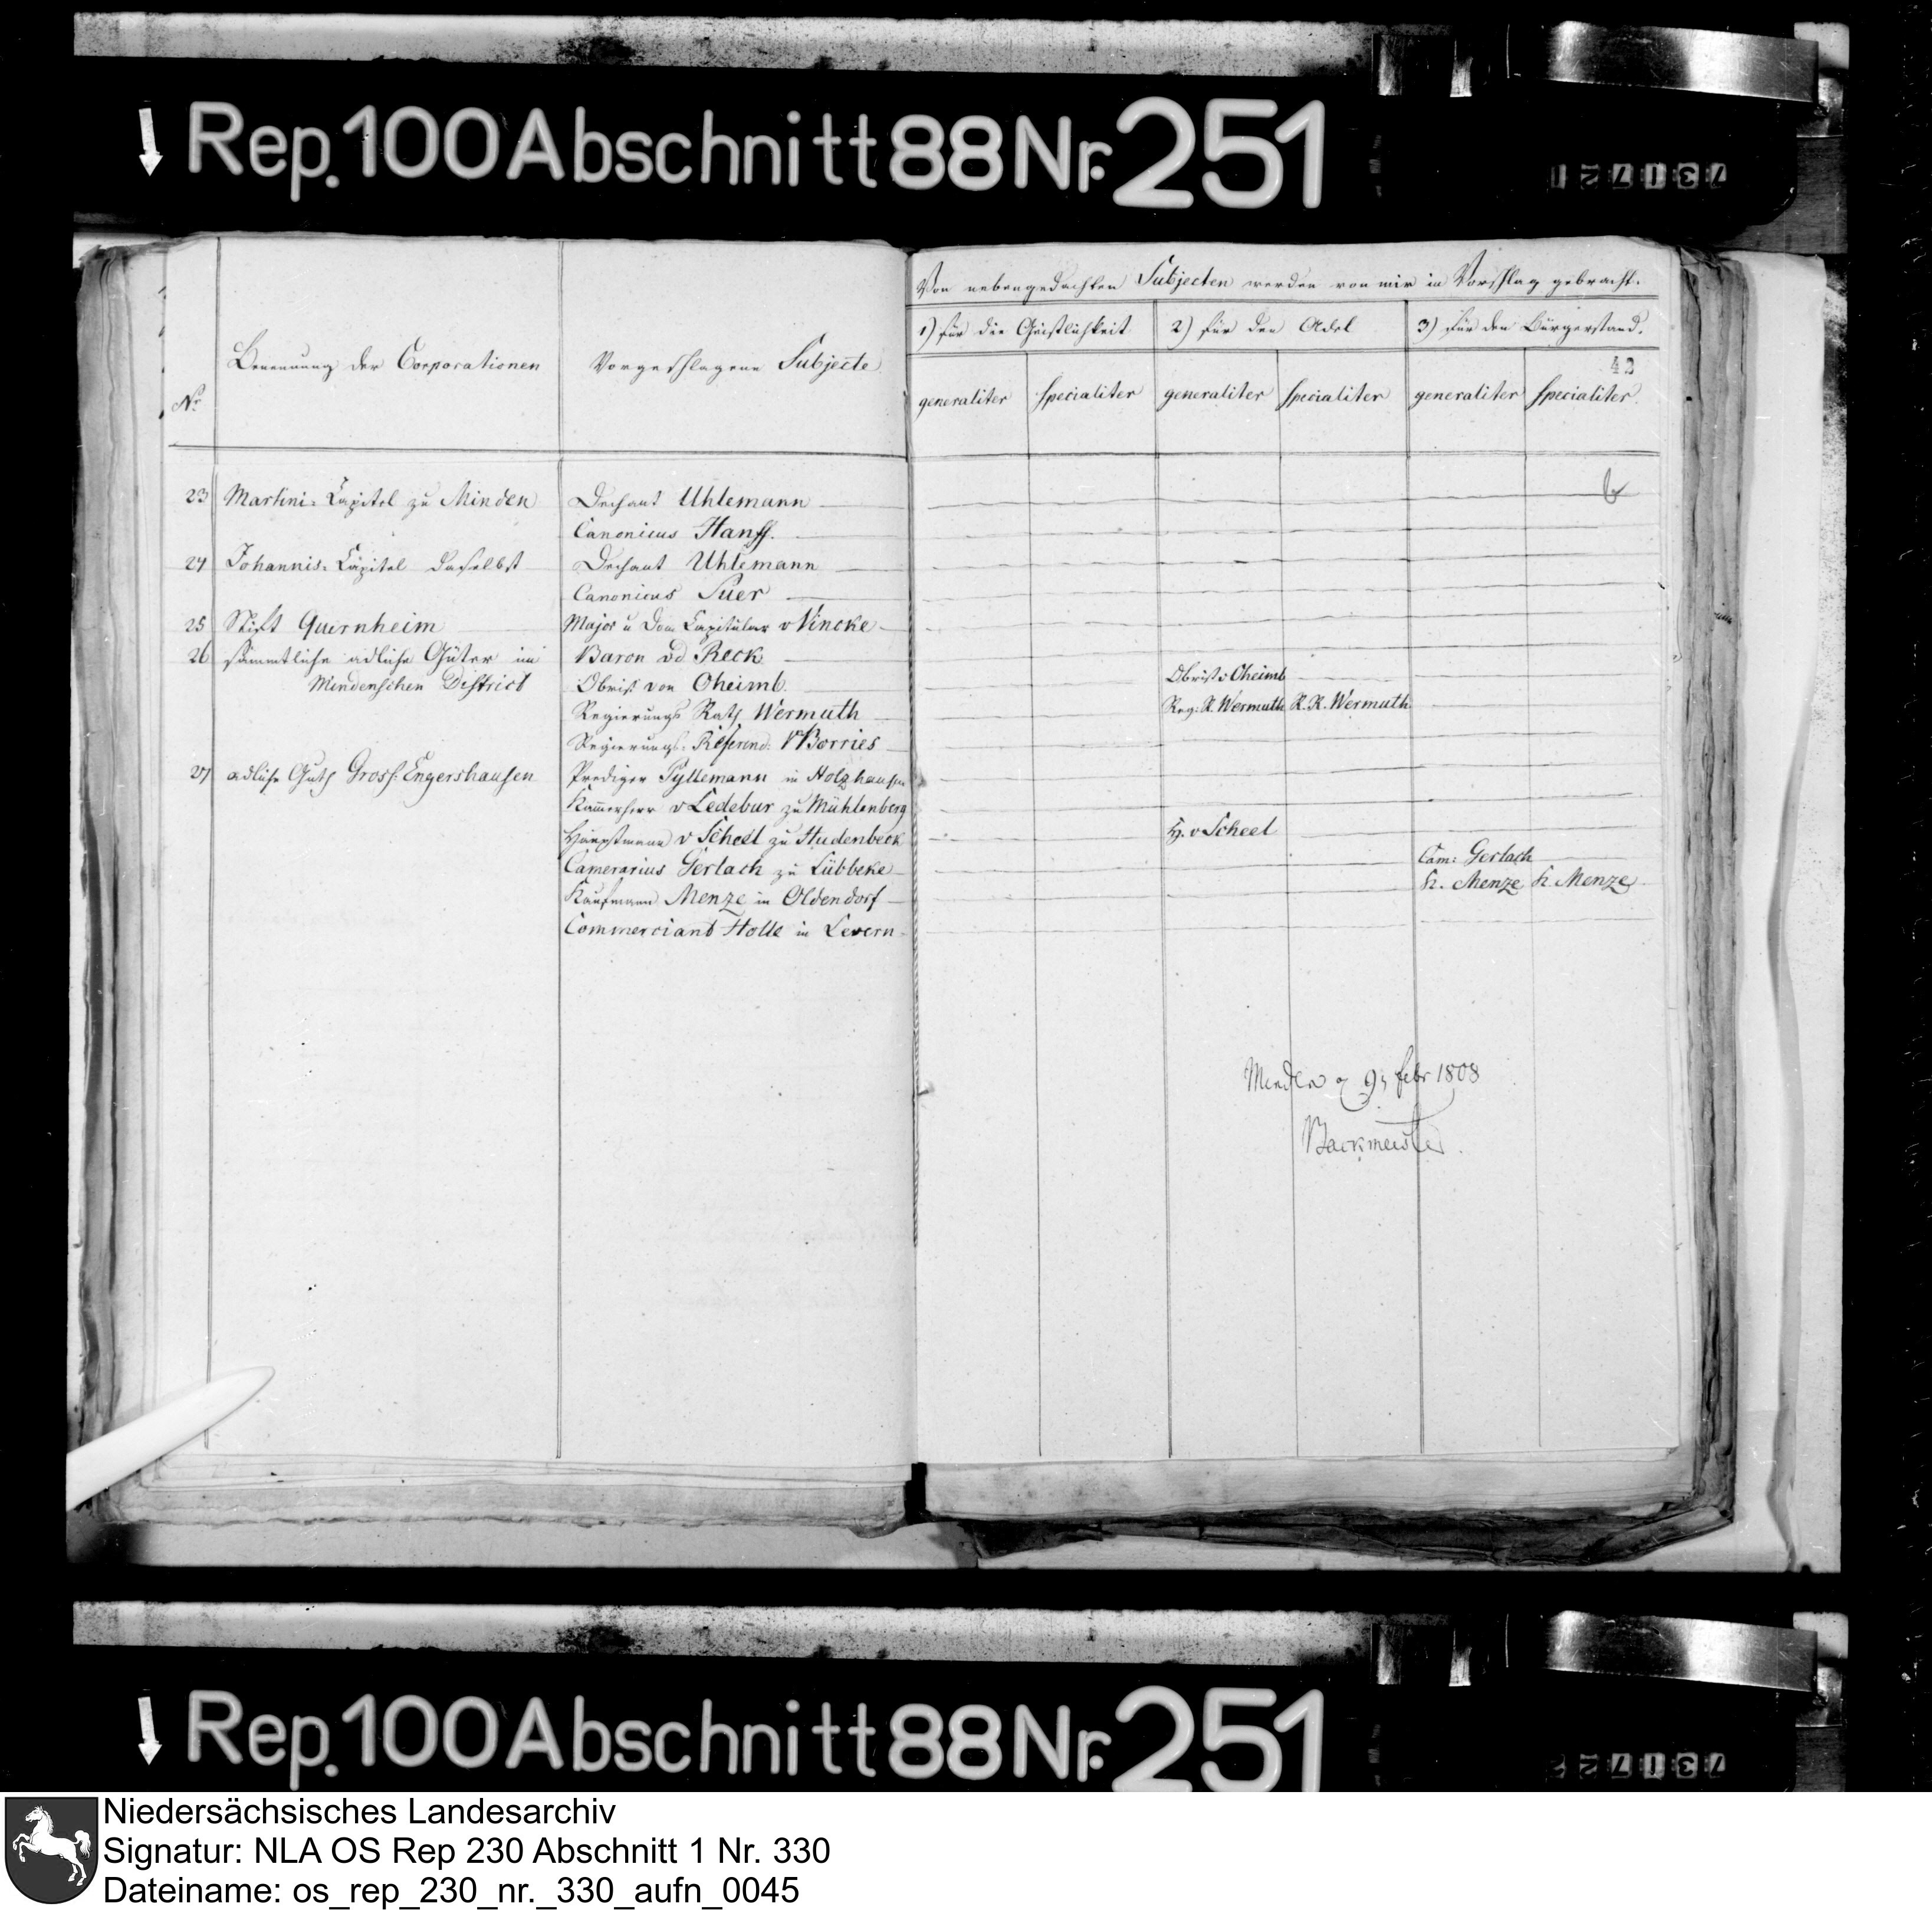 Rep. 100 Abschnitt 88 Nr. 251
Von nebengedachten Subjecten werden von mir in Vorschlag gebracht.
1) für die Geistlichkeit 2) für den Adel 3) für den Bürgerstand.
42
No Benennung der Corporationen Vorgeschlagene Subjecte
generaliter specialiter generaliter specialiter generaliter specialiter
23 Martini-Capitel zu Minden Dechant Uhlemann
Canonicus Hanff.
24 Johannis-Capitel daselbst Dechant Uhlemann
Canonicus Suer
25 Stift Quernheim Major u Dom Capitular v Vincke
26 sämmtliche adliche Güter im Baron vd Reck
Mindenschen District Obrist von Oheimb. Obrist v Oheimb
Regierungs Rath Wermuth Reg: R. Wermuth R. R. Wermuth
Regierungs-Referend: v Borries
27 adliche Guth Gross Engershausen Prediger Tyllemann in Holzhausen
Kammerherr v Ledebur zu Mühlenberg
Hauptmann v Scheel zu Hudenbeck H. v Scheel
Camerarius Gerlach zu Lübbeke Cam: Gerlach
Kaufmann Menze in Oldendorf K. Menze K Menze
Commerciant Holle in Levern
Minden 9 febr 1808
Backmeister.
Rep. 100 Abschnitt 88 Nr. 251
Niedersächsisches Landesarchiv
Signatur: NLA OS Rep 230 Abschnitt 1 Nr. 330
Dateiname: os_rep_230_nr._330_aufn_0045